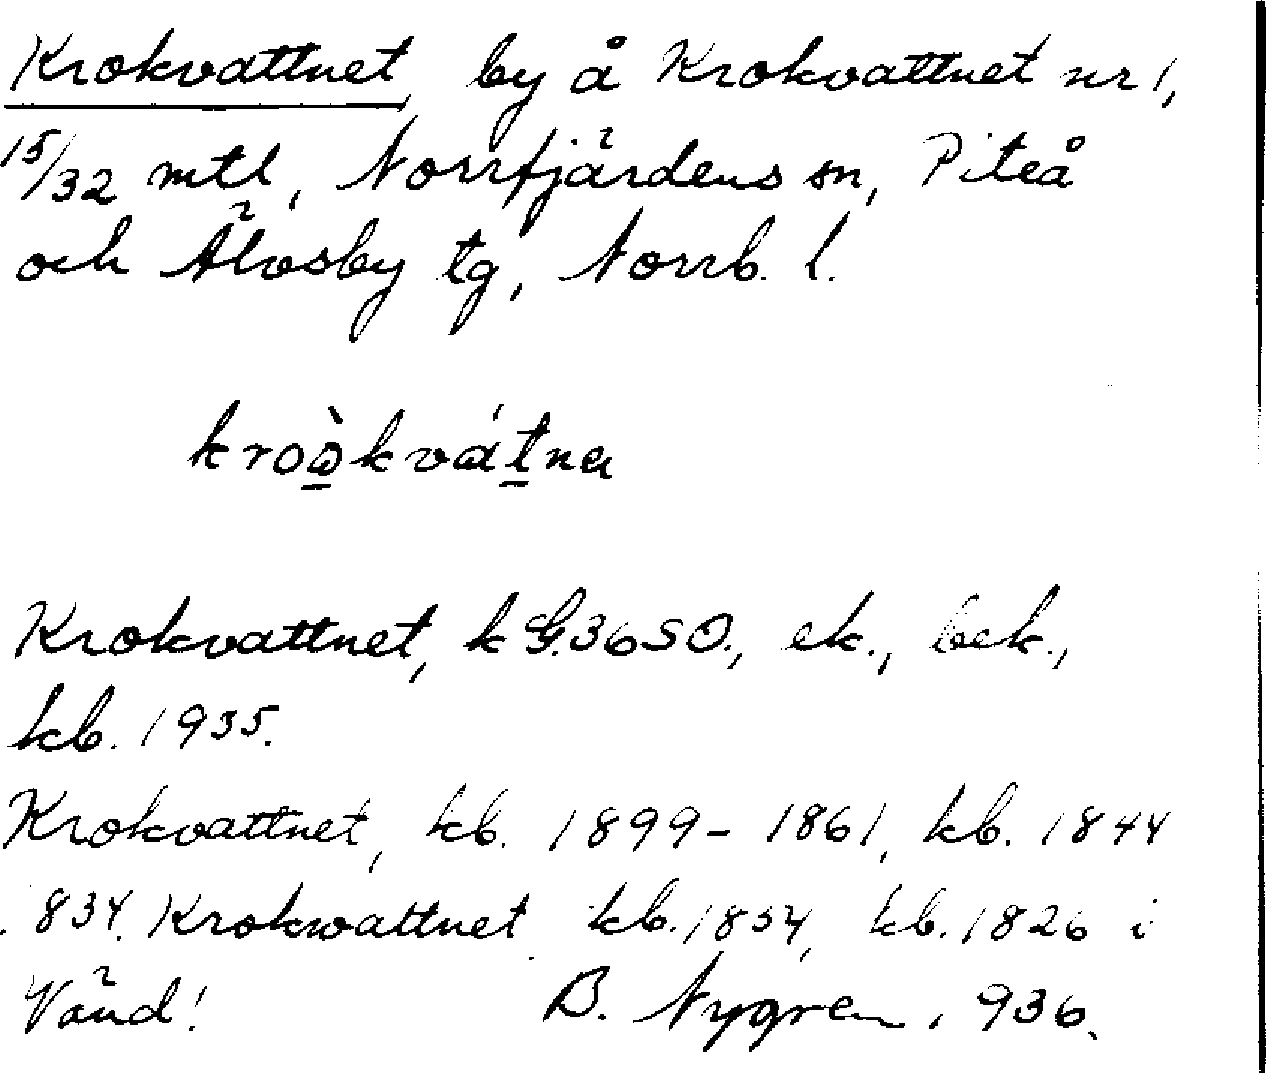 Krokvattnet, by å Krokvattnet nr 1,
15/32 mtl, Norrfjärdens sn, Piteå
och Älvsby tg, Norrb. l.
kroòkvátna
Krokvattnet, k G.36SO., ek., bek.,
kb. 1935.
Krokvattnet, kb. 1899-1861, kb. 1844
834. Krokwattnet kb. 1854, kb. 1826 i
Vänd! B. Nygren, 936.